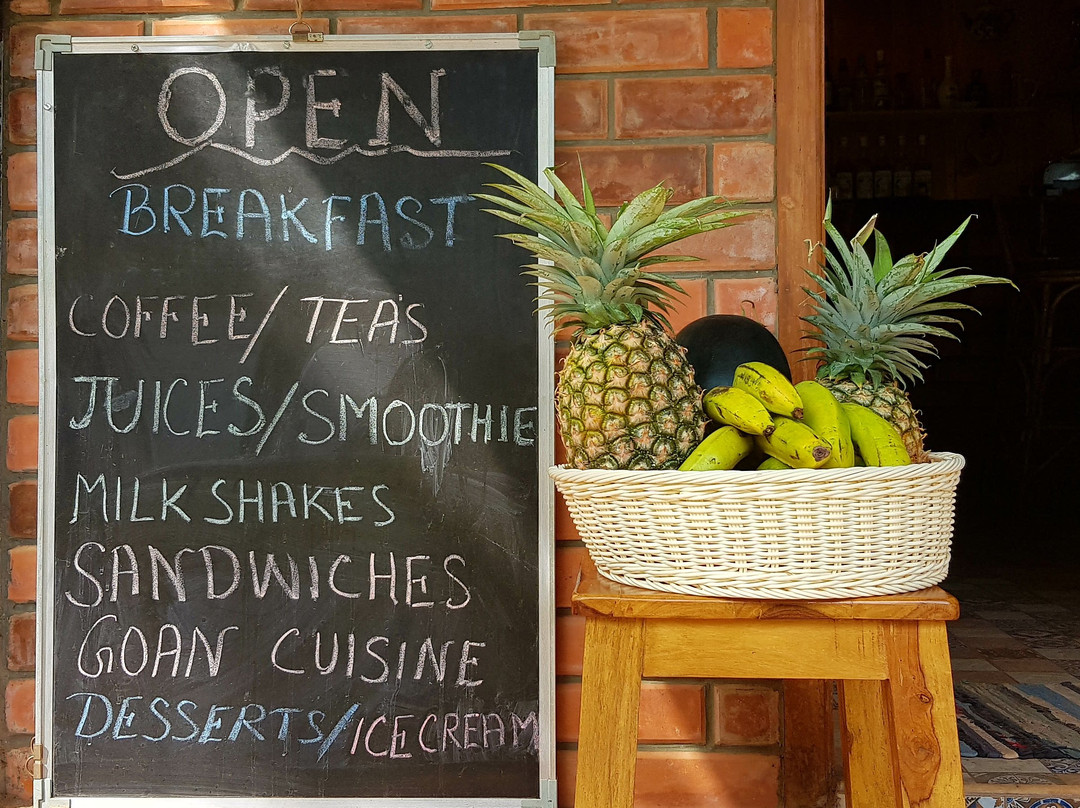 OPEN
BREAKFAST
COFFEE/ TEA'S
JUICES/SMOOTHIE
MILKSHAKES
SANDWICHES
GOAN CUISINE
DESSERTS/ICECREAM